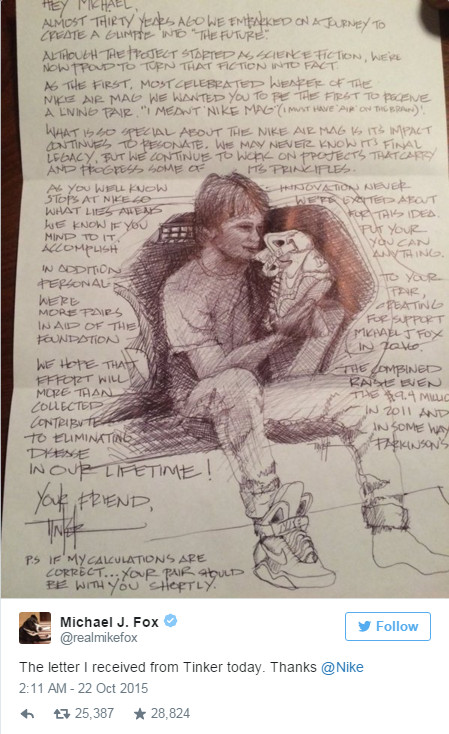 HEY MICHAEL,
ALMOST THIRTY YEARS AGO WE EMBARKED ON A JOURNEY TO
CREATE A GLIMPSE INTO "THE FUTURE".
ALTHOUGH THE PROJECT STARTED AS SCIENCE FICTION, WE'RE
NOW PROUD TO TURN THAT FICTION INTO FACT
AS THE FIRST, MOST CELEBRATED WEARER OF THE
NIKE AIR MAG WE WANTED YOU TO BE THE FIRST TO RECEIVE
A LIVING PAIR. "I MEANT NIKE MAG" (I MUST HAVE 'AIR' ON THE BRAIN)!
WHAT IS SO SPECIAL ABOUT THE NIKE AIR MAG IS ITS IMPACT
CONTINUES TO RESONATE. WE MAY NEVER KNOW ITS FINAL
LEGACY, BUT WE CONTINUE TO WORK ON PROJECTS THAT CARRY
AND PROGRESS SOME OF ITS PRINCIPLES.
AS YOU WELL KNOW INNOVATION NEVER
STOPS AT NIKE SO WE'RE EXCITED ABOUT
WHAT LIES AHEAD FOR THIS IDEA.
WE KNOW IF YOU PUT YOUR
MIND TO IT, YOU CAN
ACCOMPLISH ANYTHING.
IN ADDITION TO YOUR
PERSONAL PAIR,
WE'RE CREATING
MORE PAIRS FOR SUPPORT
IN AID OF THE MICHAEL J FOX
FOUNDATION IN 2016.
WE HOPE THAT THE COMBINED
EFFORT WILL RAISE EVEN
MORE THAN THE $9.4 MILLIO
COLLECTED IN 2011 AND
CONTRIBUTE IN SOME WAY
TO ELIMINATING PARKINSON'S
DISEASE
IN OUR LIFETIME!
YOUR FRIEND,
TINKER
PS IF MY CALCULATIONS ARE
CORRECT... YOUR PAIR SHOULD
BE WITH YOU SHORTLY.
Michael J. Fox
@realmikefox
Follow
The letter I received from Tinker today. Thanks @Nike
2:11 AM - 22 Oct 2015
25,387 28,824